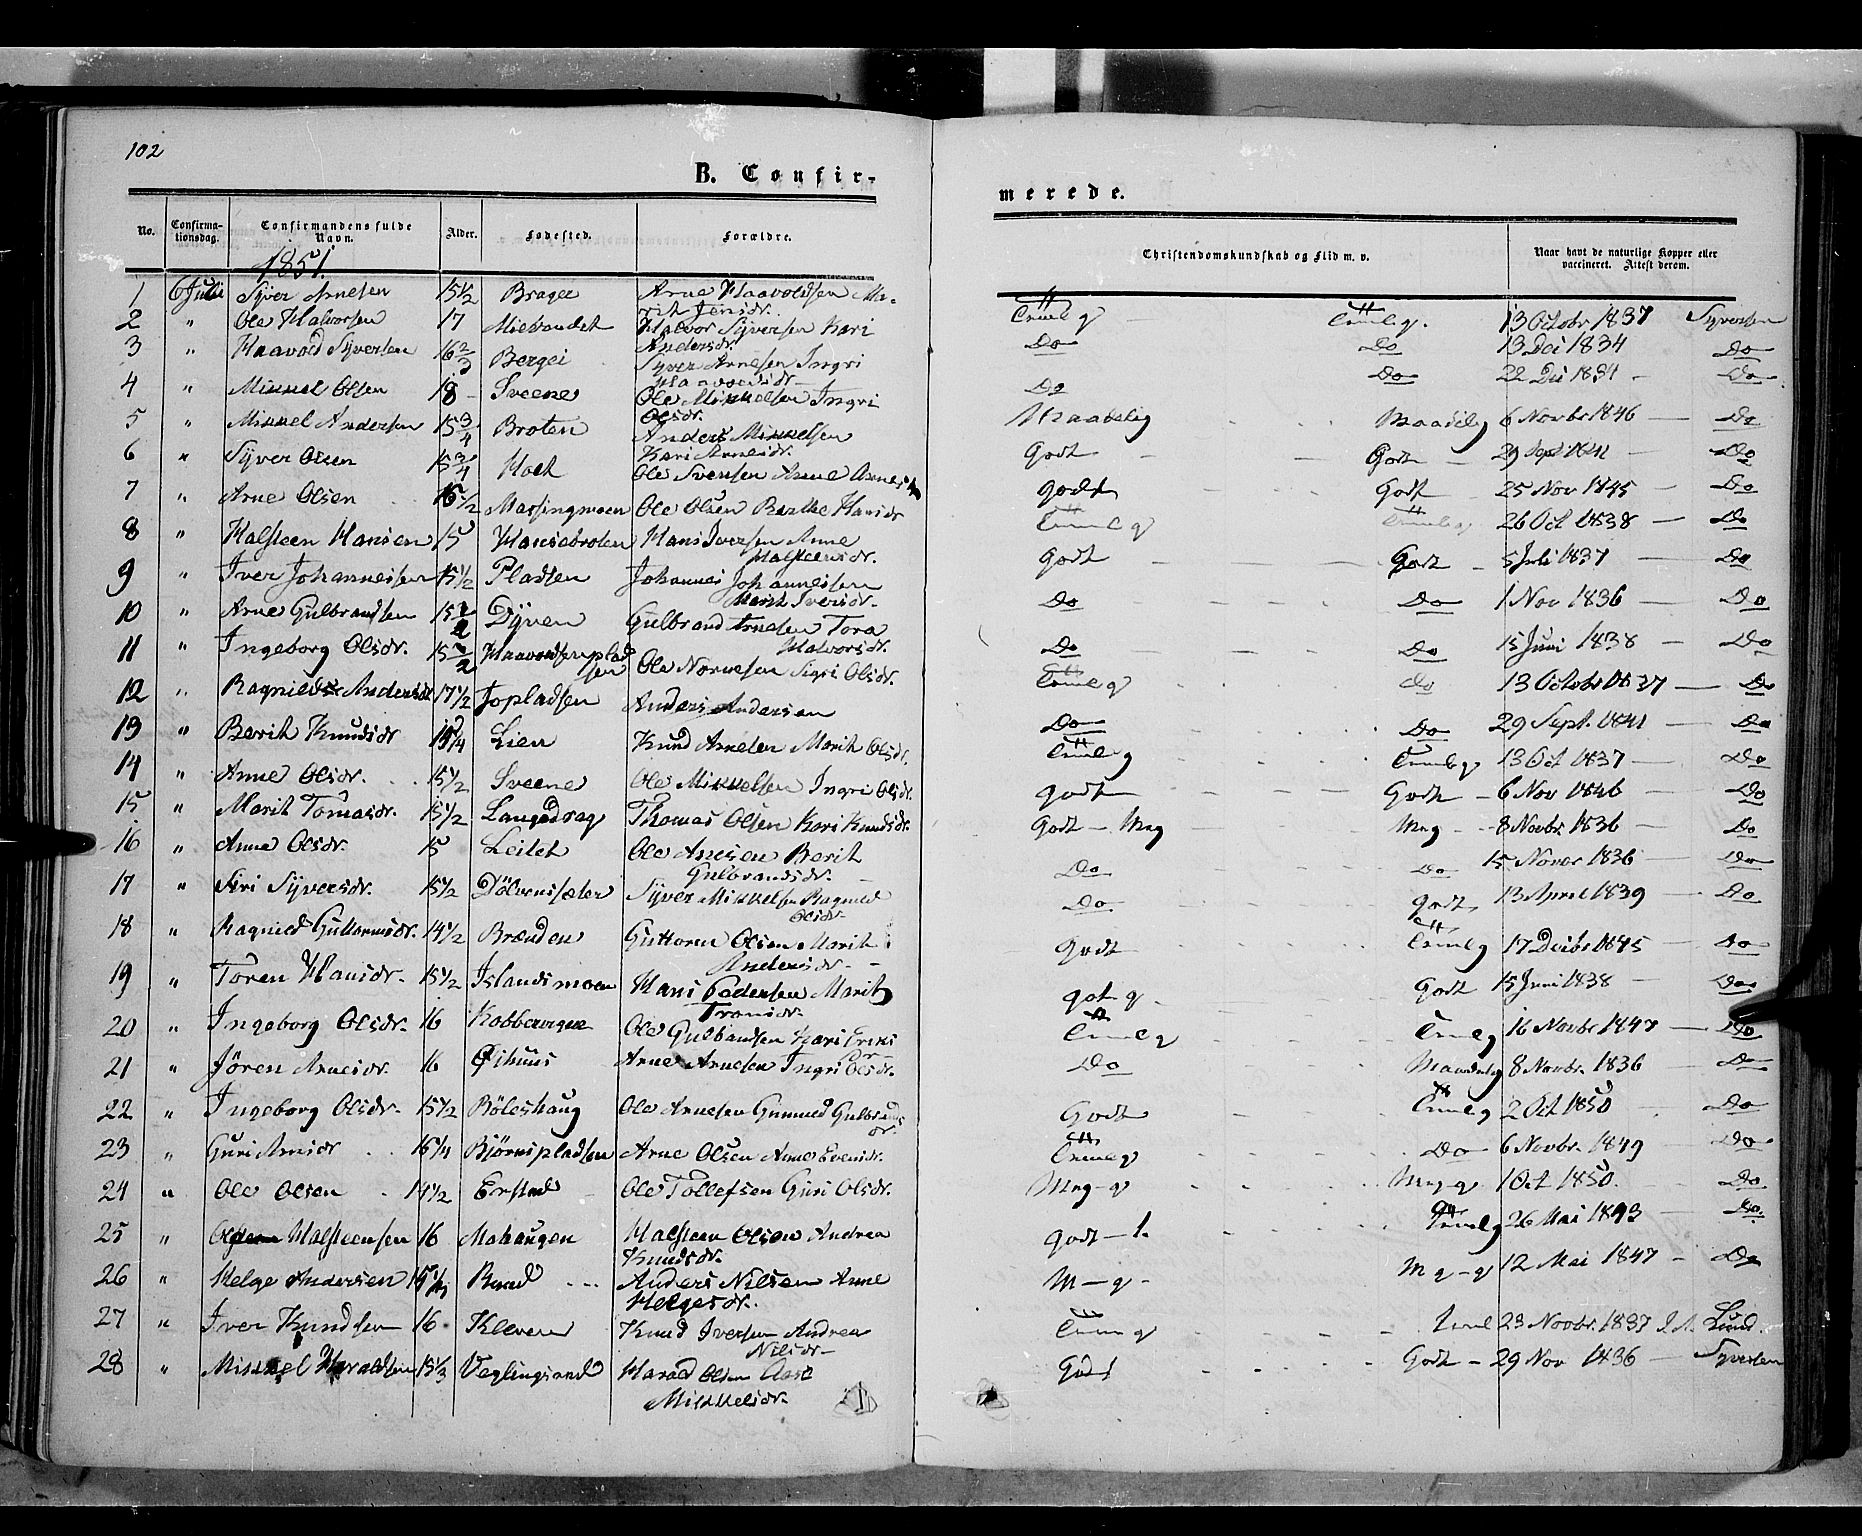 102
B. Confir-
merede.
No. Confirma-tionsdag. Confirmandens fulde Navn. Alder. Fødested. Forældre.
Christendomskundskab og Flid m. v. Naar havt de naturlige Kopper eller vaccineret. Attest derom.
1851.
1 6 Juli Syver Arnesen 15 1/2 Bragee Arne Haavoldsen Ma-
rit Jensdr. 13 Octobr 1837 Syversen
2 " Ole Halvorsen 17 Halvor Syversen Kari
Andersdr. Do Do 13 Dec 1834 Do
3 " Haavold Syversen 16 2/3 Bergei Syver Arnesen Ingri
Haavoldsdr. Do 22 Dec 1834 Do
4 " Mikkel Olsen 18 Sveene Ole Mikkelsen Ingri
Olsdr. Maadelig Maadelig 6 Novbr 1846 Do
5 " Mikkel Andersen 15 3/4 Broten Anders Mikkelsen
Kari Arnesdr. Godt Godt 29 Sept 1841 Do
6 " Syver Olsen 15 3/4 Moen Ole Svensen Anne
godt Godt 25 Nov 1845 Do
7 " Arne Olsen 15 1/2 Massingmoen Ole Olsen Berthe Hansdr
26 Oct 1838 Do
8 " Halsteen Hansen 15 Hansebroten Hans Iversen Anne
Halsteensdr. Godt Godt 5 Juli 1837 Do
9 " Iver Johannessen 15 1/2 Pladsen Johannes Johannessen
Marit Iversdr. Do Do 1 Nov 1836 Do
10 " Arne Gulbrandsen 15 1/2 Dyven Gulbrand Arnesen Tora
Halvorsdr. Do Do 15 Juni 1838 Do
11 " Ingeborg Olsdr. 15 1/2 Haavoldsenplad
sen Ole Sigri Olsdr. do 13 Octobr 1837 Do
12 " Ragnild Andersdr 17 1/2 Jopladsen Anders Andersen Do Do 29 Sept. 1841 Do
13 " Berit Knudsdr Lien Knud Arnesen Marit Olsdr. 13 Oct 1837 Do
14 " Anne Olsdr. 15 1/2 Sveene Ole Mikkelsen Ingri Olsdr. godt Godt 6 Nov 1846 Do
15 " Marit Tomasdr. 15 1/2 Langedrag Thomas Olsen Kari Knudsdr. Godt - Mg Mg 8 Novbr. 1836 Do
16 " Anne Olsdr. 15 Leitet Ole Arnesen Berit
Gulbrandsdr. Do Do 15 Novbr 1836 Do
17 " Siri Syversdr. 15 1/2 Dölvensæter Syver Mikkelsen Ragnild
Olsdr. Do Godt 13 April 1839 Do
18 " Ragnild Guttormsdr. 14 1/2 Brænden Guttorm Olsen Marit
Andersdr. Godt 17 Decbr 1845 Do
19 " Toren Hansdr. 15 1/2 Islandsmoen Hans Pedersen Marit
Tronsdr. got-g. Godt 15 Juni 1838 Do
20 " Ingeborg Olsdr. 16 Kobbervigue Ole Gulbandsen Kari Eriks
dr 16 Novbr 1847 Do
21 " Jören Arnesdr. 16 Öihuus Arne Arnesen Ingri Olsdr. Do Maadelig 8 Novbr. 1836 Do
22 " Ingeborg Olsdr. 15 1/2 Böleshaug Ole Arnesen Gunild Gulbrands
dr. Godt 2 Oct 1850 Do
23 " Guri Arnsdr 16 1/4 Björnspladsen Arne Olsen Anne Evensdr. Do 6 Novbr. 1849 Do
24 " Ole Olsen 14 1/2 Erstad Ole Tollefsen Guri Olsdr. Mg-g Mg-g 1 Oct 1850. Do
25 " Halsteensen 16 Mohaugen Halsteen Olsen Andrea
Knudsdr. godt 26 Mai 1843 Do.
26 " Helge Andersen Ruud Anders Nilsen Anne
Helgesdr. M-g- Mg-g 12 Mai 1847 Do
27 " Iver Knudsen 16 Kleven Knud Iversen Andrea
Nilsdr 23 Novbr. 1837 Lund.
28 " Mikkel Haraldsen 15 1/3 Veglingsand Harad Olsen Aase
Mikkelsdr. Godt Godt 29 Nov 1836 Syversen